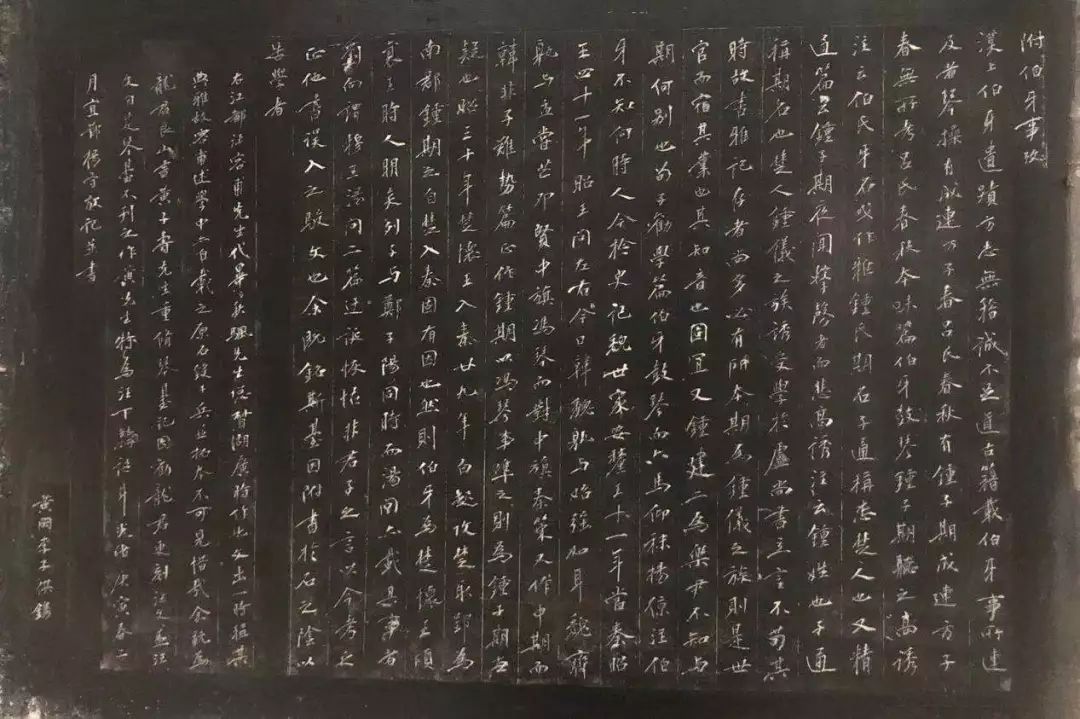 附伯牙事攷
漢上伯牙遺蹟方志無稽誠不足道古籍載伯牙事所述
及者琴操有成連方子春呂氏春秋有鍾子期成連方子
春無所考呂氏春秋本味篇伯牙鼓琴鍾子期聽之高誘
注云伯氏牙名或作雅鍾氏期名子通稱悉楚人也又精
通篇曰鍾子期夜聞擊磬者而悲高誘注云鍾姓也子通
稱期名也楚人鍾儀之族誘受學於盧尚書立言不苟其
時故書雅記存者尚多必有所本期為鍾儀之族則是世
官而宿其業也其知音也固宜又鍾建一為樂尹不知与
期何別也荀子勸學篇伯牙鼓琴而六馬仰秣楊倞注伯
牙不知何時人余於史記魏世家安釐王十一年當秦昭
王四十一年昭王問左右今日韓魏孰与始強如耳魏齊
孰与孟嘗芒卯賢中旗馮琴而對中旗秦策又作中期而
韓非子難勢篇正作鍾期以馮琴事準之則為鍾子期無
疑也昭三十年楚懷王入秦廿九年白起攻楚取郢為
南郡鍾期之自楚入秦固有因也然則伯牙為楚懷王頃
襄王時人明矣列子与鄭子陽同時而湯問亦載其事者
劉向謂穆王湯問二篇迂誕恢怪非君子之言以今考之
正他書誤入之駁文也余既銘斯臺因附書於石之陰以
告學者
右江都汪容甫先生代畢秋颿先生總督湖廣時作此文出一時推其
典雅故容甫述學中亦自載之原石經兵並拓本不可見惜哉余
龍君黄子壽先生重修琴臺記因龍君更刻注文並注
文可是琴臺不刊之作寅先生特為注下語光緒庚寅春二
月宜都楊守敬記並書
黄岡李子祺鐫